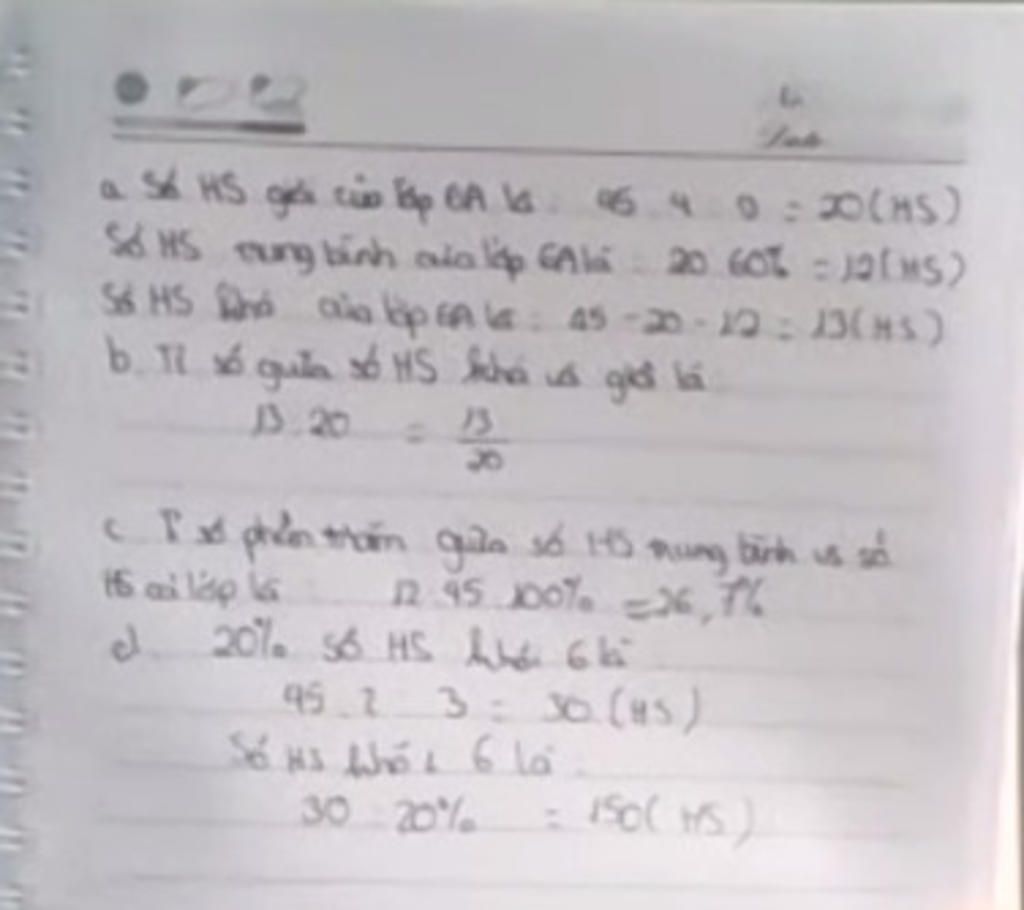 a. Số HS giỏi của lớp 6A là: 45 . 4 : 9 = 20 (HS)
Số HS trung bình của lớp 6A là: 20 . 60% = 12 (HS)
Số HS khá của lớp 6A là: 45 - 20 - 12 = 13 (HS)
b. Tỉ số giữa số HS khá và giỏi là
13 : 20 = 13/20
c. Tỉ số phần trăm giữa số HS trung bình và số
HS cả lớp là 12 : 45 . 100% = 26,7%
d. 20% số HS khối 6 là
45 . 2 : 3 = 30 (HS)
Số HS khối 6 là:
30 : 20% = 150 (HS)